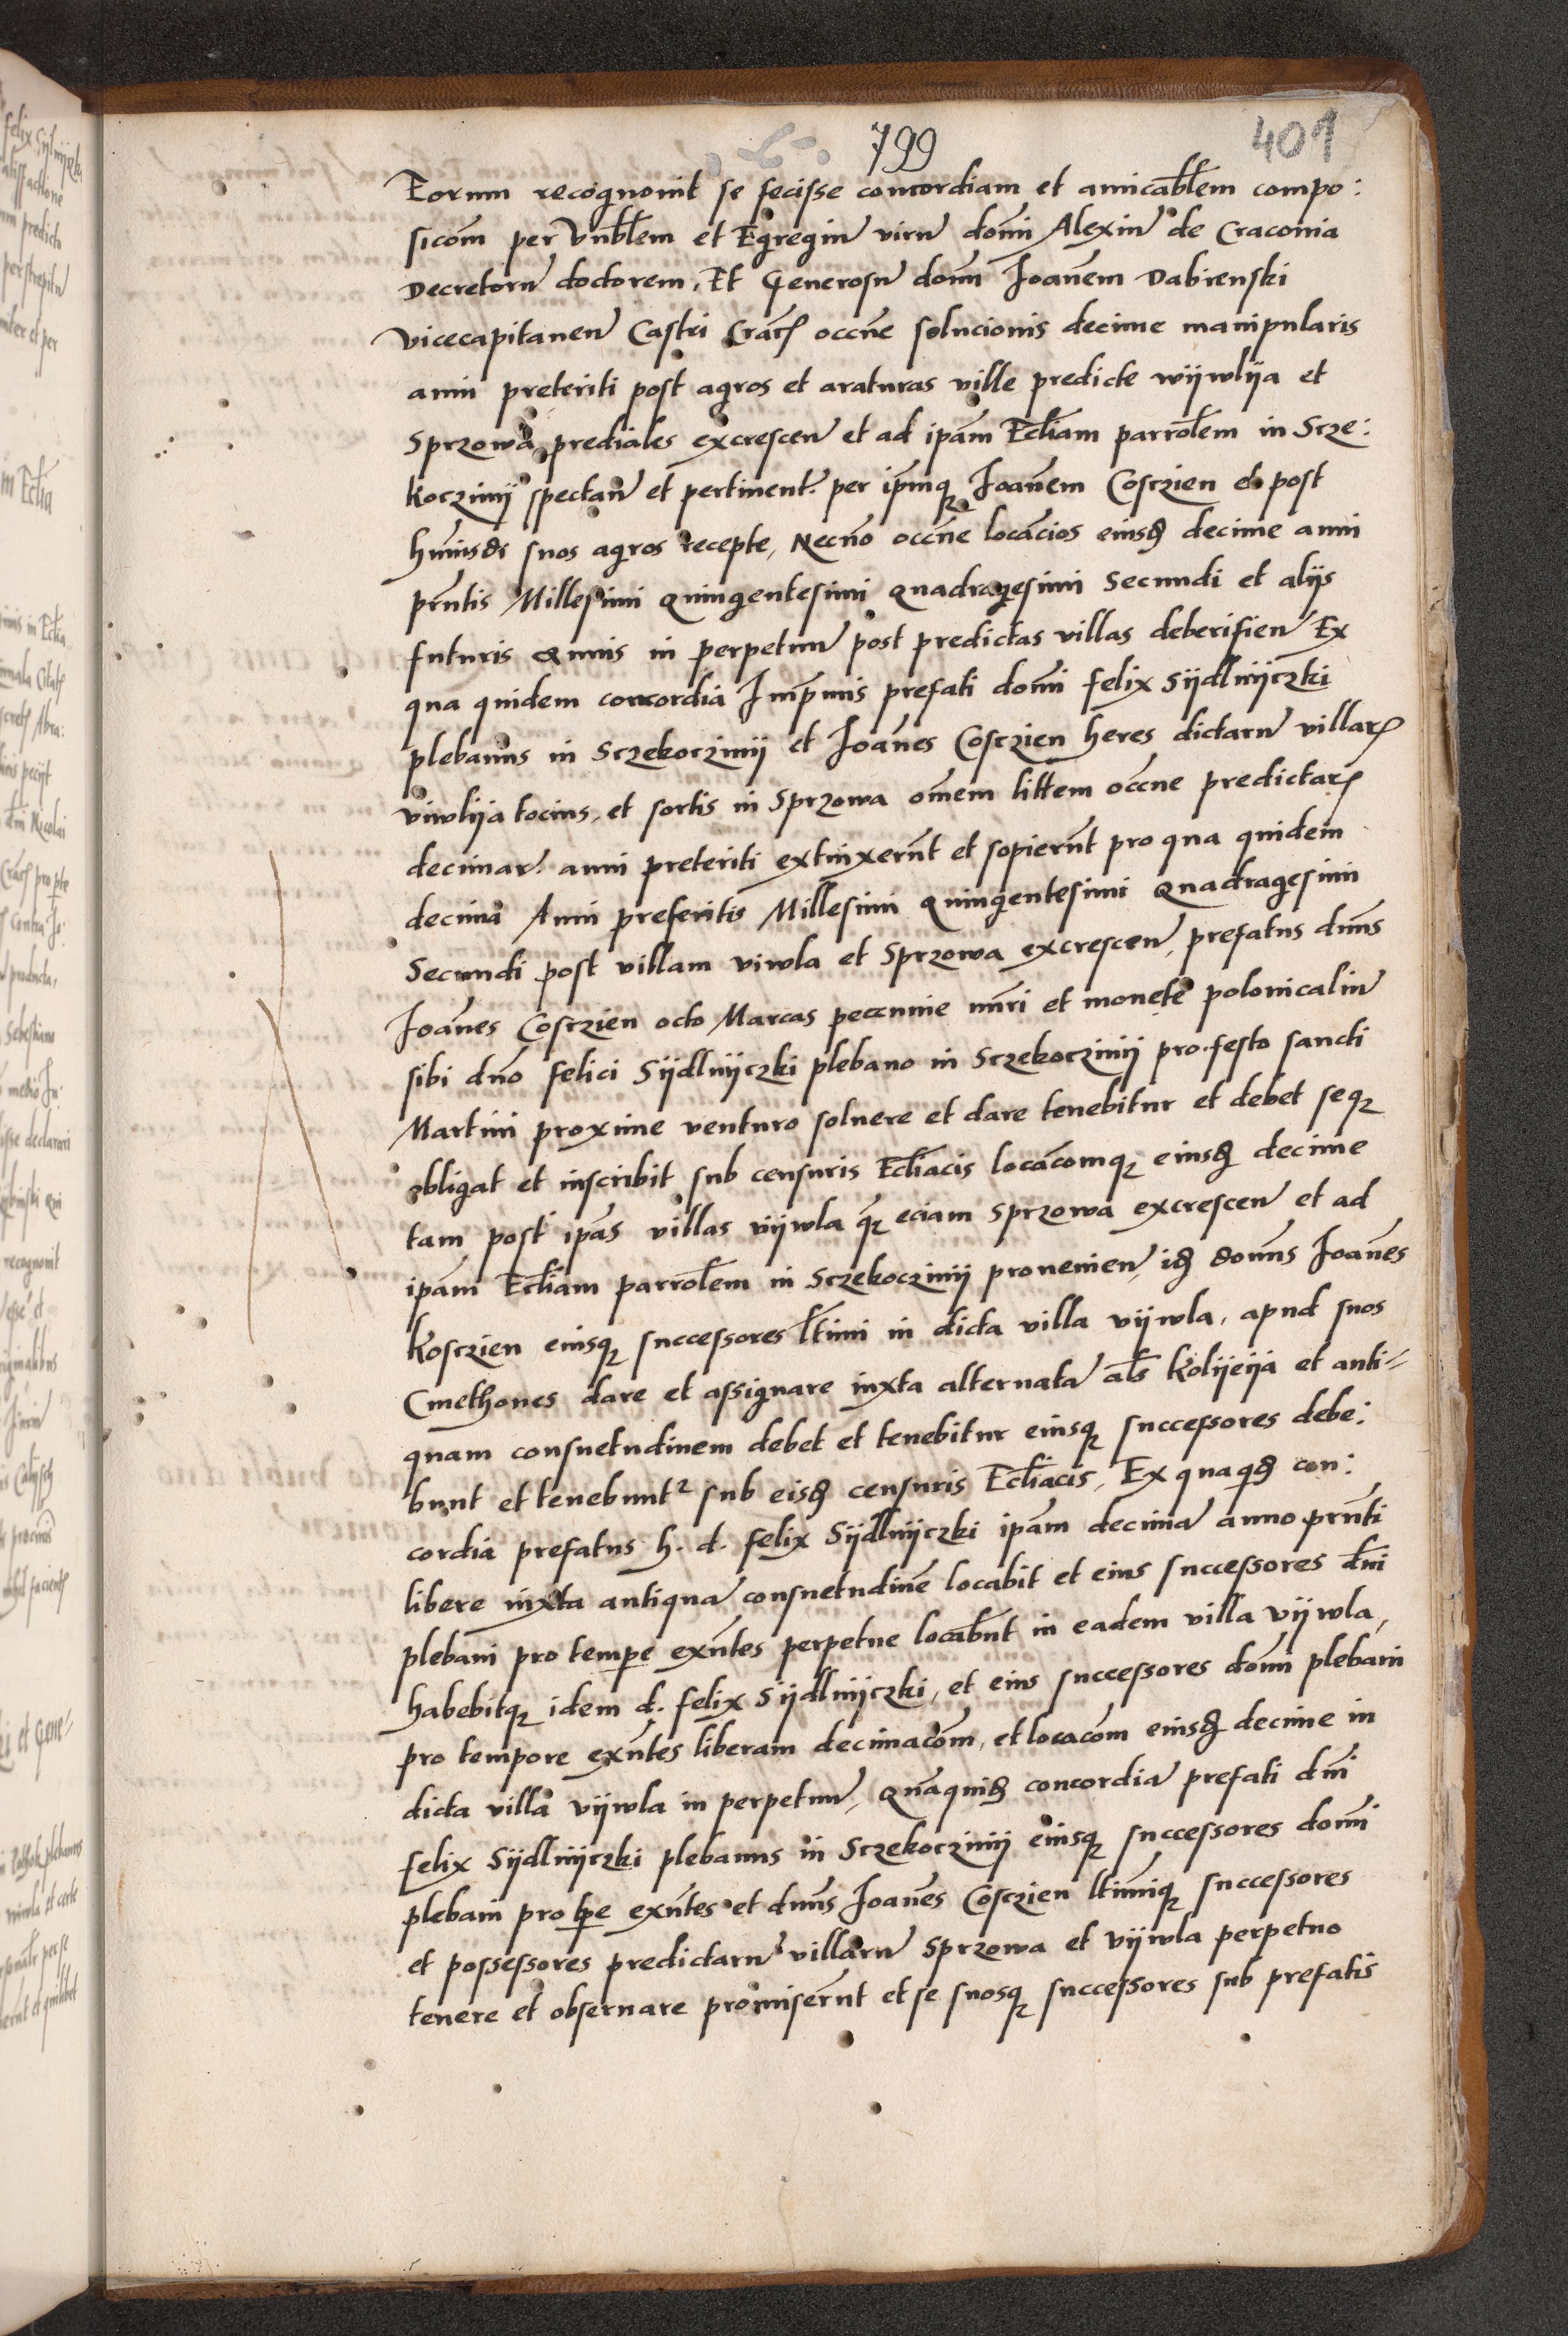 799
401
Eorum recognouit se fecisse concordiam et amicablem compo:
sicōm per Vnblem et Egregiū virū domi Alexiū de Craconia
Decretorū doctorem, Et Generosū domī Joanem Dabienski
vicecapitaneū Castri Crac̄ occne solucionis decime manipularis
anni preteriti post agros et araturas ville predicte wijwlija et
Sprzowa prediales excrescen̄ et ad ipam̄ Ecliam parrolem in Scze:
koczinij spectan̄ et pertinent. per ipmq; Joanem Cosczien et post
hmiusdi suos agros recepte, Necno occne locacios eiusd decime anni
prntis Millesimi Quingentesimi Quadragesimi Secundi et alijs
futuris annis in perpetuū post predictas villas deberifien̄ Ex
qua quidem concordia Inprimis prefati domi felix Sijdlnijczki
plebanus in Sczekoczinij et Joanes Cosczien heres dictarū villar̄
viwlija tocius, et sortis in Sprzowa omem littem occne predictar̄
decimar. anni preteriti extinxernt et sopiernt pro qua quidem
decima Anni preteritis Millesimi Quingentesimi Quadragesimi
Secundi post villam viwla et Sprzowa excrescen̄, prefatus dnns
Joanes Cosczien octo Marcas peccunie nmri et monete polonicaliū
sibi dno felici Sijdlnijczki plebano in Sczekoczinij pro festo sancti
Martini proxime venturo soluere et dare tenebitur et debet seq;
obligat et inscribit sub censuris Ecliacis locacomq; eiusd decime
tam post ipas villas vijwla q̄z eciam Sprzowa excrescen̄ et ad
ipam Ecliam parrolem in Sczekoczinij prouenien̄, id domns Joanes
Kosczien eiusq; successores ltimi in dicta villa vijwla, apud suos
Cmethones dare et assignare iuxta alternatā als Kolijeija et anti=
quam consuetudinem debet et tenebitur eiusq; successores debe:
bunt et tenebunt² sub eisd censuris Ecliacis, Ex quaqd con:
cordia prefatus h. d. felix Sijdlnijczki ipam decimā anno prnti
libere iuxta antiquā consuetudinē locabit et eius successores dni
plebani pro tempe exntes perpetue locabnt in eadem villa vijwla,
habebitq; idem d. felix Sijdlnijczki, et eius successores domi plebani
pro tempore exntes liberam decimacōm, et locacōm eiusd decime in
dicta villa vijwla in perpetuū, Quaquid concordiā prefati dmi
felix Sijdlnijczki plebanus in Sczekoczinij eiusq; successores domi
plebani pro tpe exntes et dnns Joanes Cosczien ltimiq; successores
et possessores predictarū villarū Sprzowa et vijwla perpetuo
tenere et obseruare promisernt et se suosq; successores sub prefatis